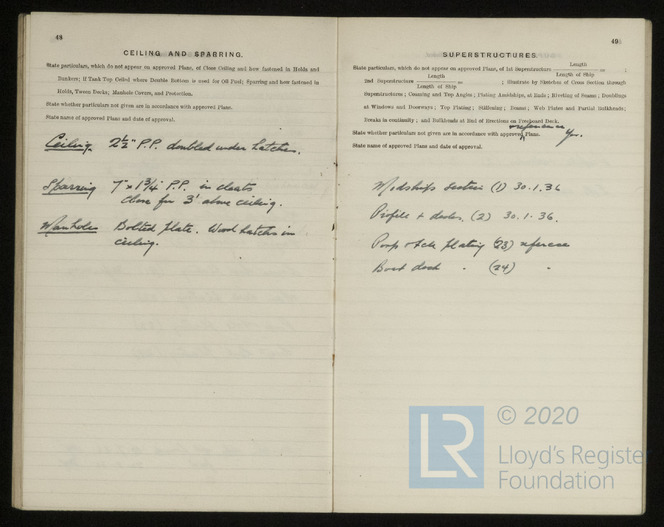 48
CEILING AND SPARRING.
State particulars, which do not appear on approved Plans, of Close Ceiling and how fastened in Holds and
Bunkers; if Tank Top Ceiled where Double Bottom is used for Oil Fuel; Sparring and how fastened in
Holds, Tween Decks; Manhole Covers, and Protection.
State whether particulars not given are in accordance with approved Plans.
State name of approved Plans and date of approval.
Ceiling. 2½" P.P. doubled under hatches.
Sparring 7" x 1¾" P.P. in cleats
Close for 3' above ceiling.
Manholes Bolted plate. Wood hatches in
ceiling.
49
SUPERSTRUCTURES.
State particulars, which do not appear on approved Plans, of 1st Superstructure Length / Length of Ship = ;
2nd Superstructure Length / Length of Ship = ; illustrate by Sketches of Cross Section through
Superstructures; Coaming and Top Angles; Plating Amidships, at Ends; Riveting of Seams; Doublings
at Windows and Doorways; Top Plating; Stiffening; Beams; Web Plates and Partial Bulkheads;
Breaks in continuity; and Bulkheads at End of Erections on Freeboard Deck.
reference
State whether particulars not given are in accordance with approved Plans. Yes.
State name of approved Plans and date of approval.
Midships Section (1) 30.1.36
Profile + decks, (2) 30.1.36.
Poop plating (23) reference
Boat deck . (24) "
LR
© 2020
Lloyd's Register
Foundation